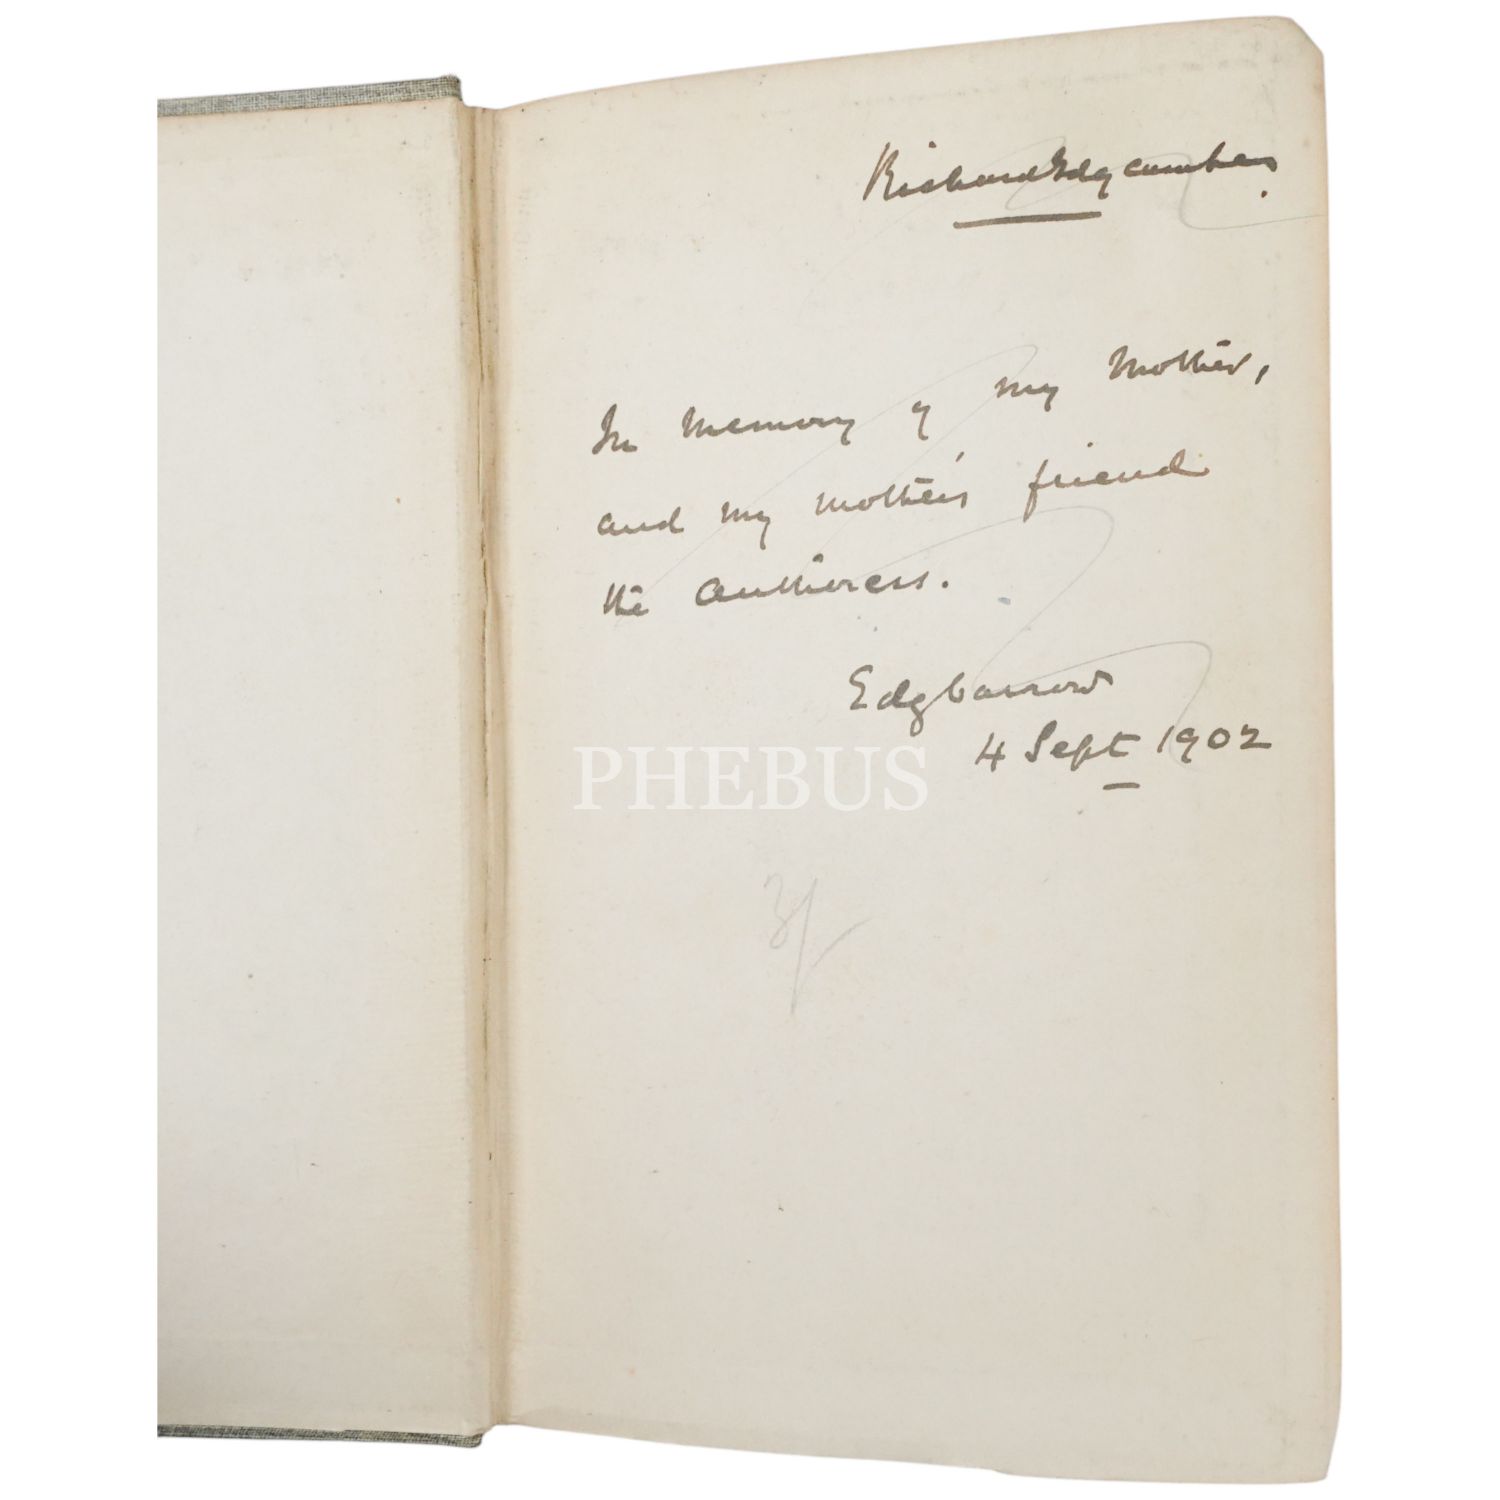 Richard Edgcumbe.
In memory of my Mother,
and my mother's friend
the Authoress.
Edgbarrow
4 Sept 1902
PHEBUS
3/-